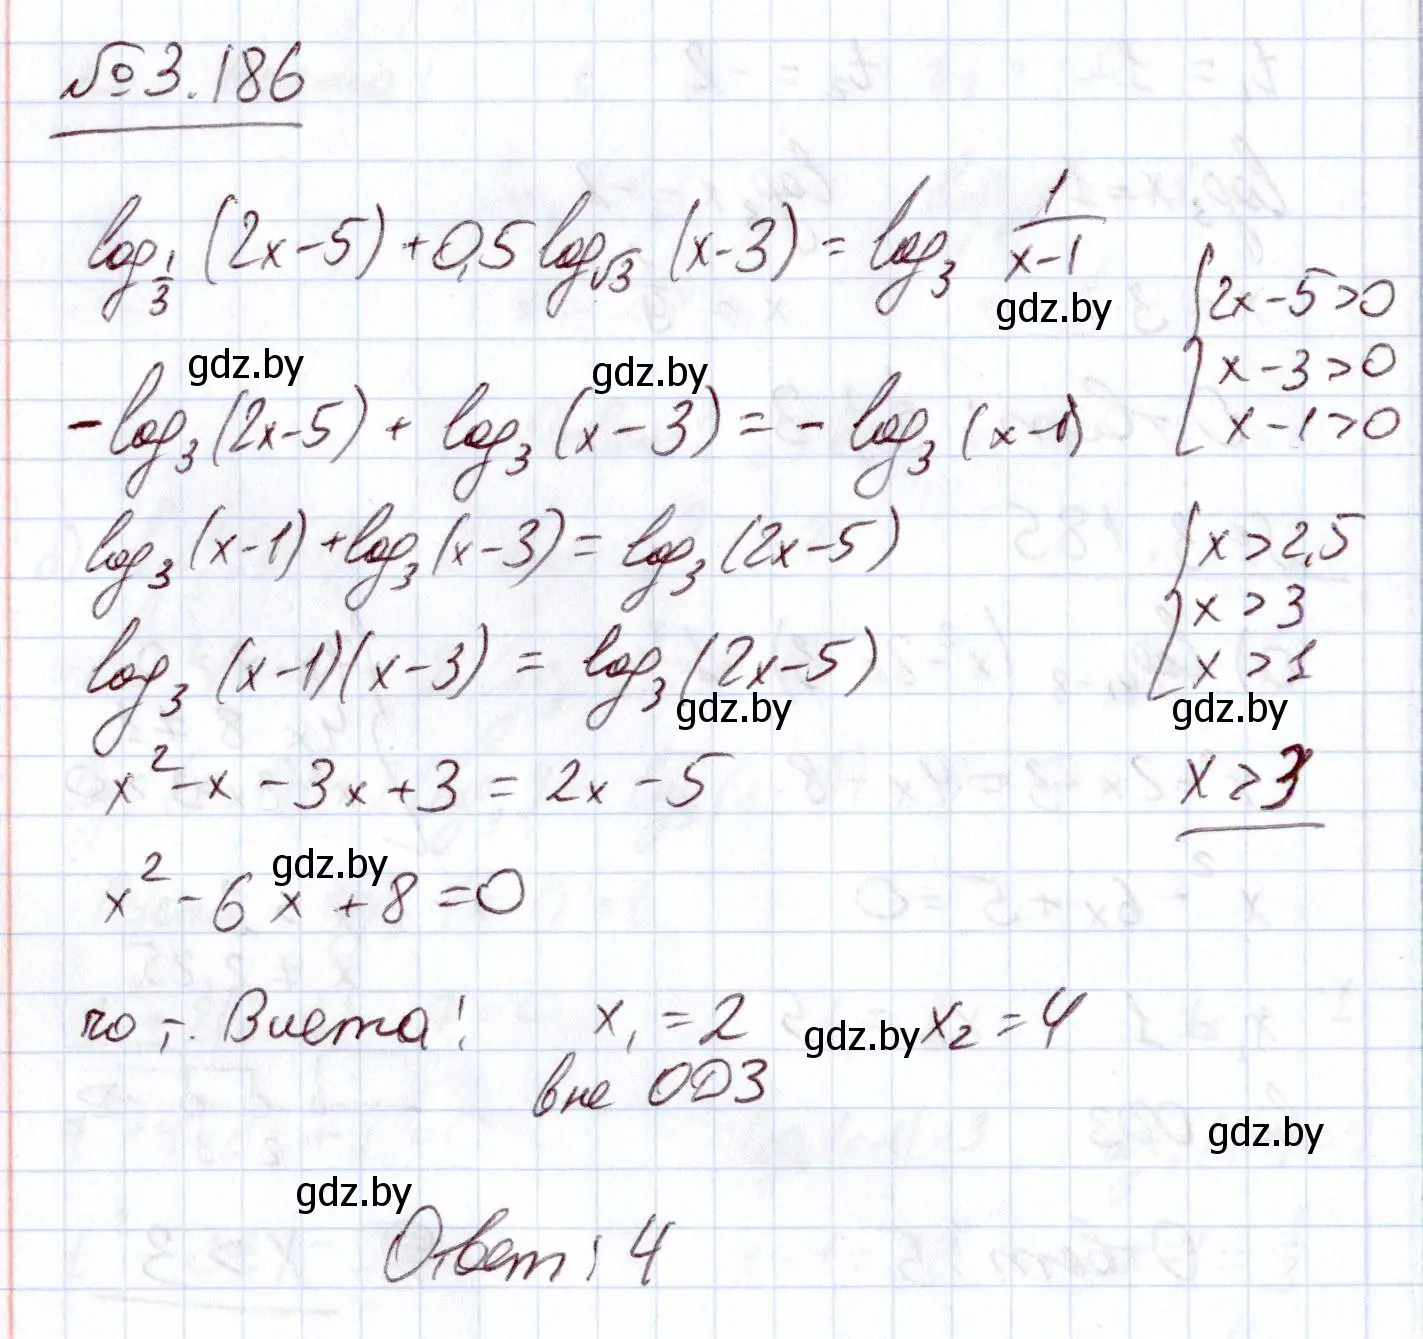 №3.186
log_{1/3}(2x-5)+0,5log_{√3}(x-3)=log_3 1/(x-1)
gdz.by
{2x-5>0
x-3>0
x-1>0
gdz.by gdz.by
-log_3(2x-5)+log_3(x-3)=-log_3(x-1)
log_3(x-1)+log_3(x-3)=log_3(2x-5)
{x>2,5
x>3
x>1
log_3(x-1)(x-3)=log_3(2x-5)
gdz.by gdz.by
x²-x-3x+3=2x-5
x>3
gdz.by
x²-6x+8=0
по т. Виета: x₁=2 gdz.by x₂=4
вне ОДЗ
gdz.by
gdz.by
Ответ: 4